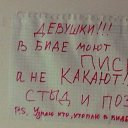 ДЕВУШКИ!!!
В БИДЕ МОЮТ
ПИС
а НЕ КАКАЮТ!
СТЫД И ПОЗ
P.S. Узнаю кто, утоплю в биде